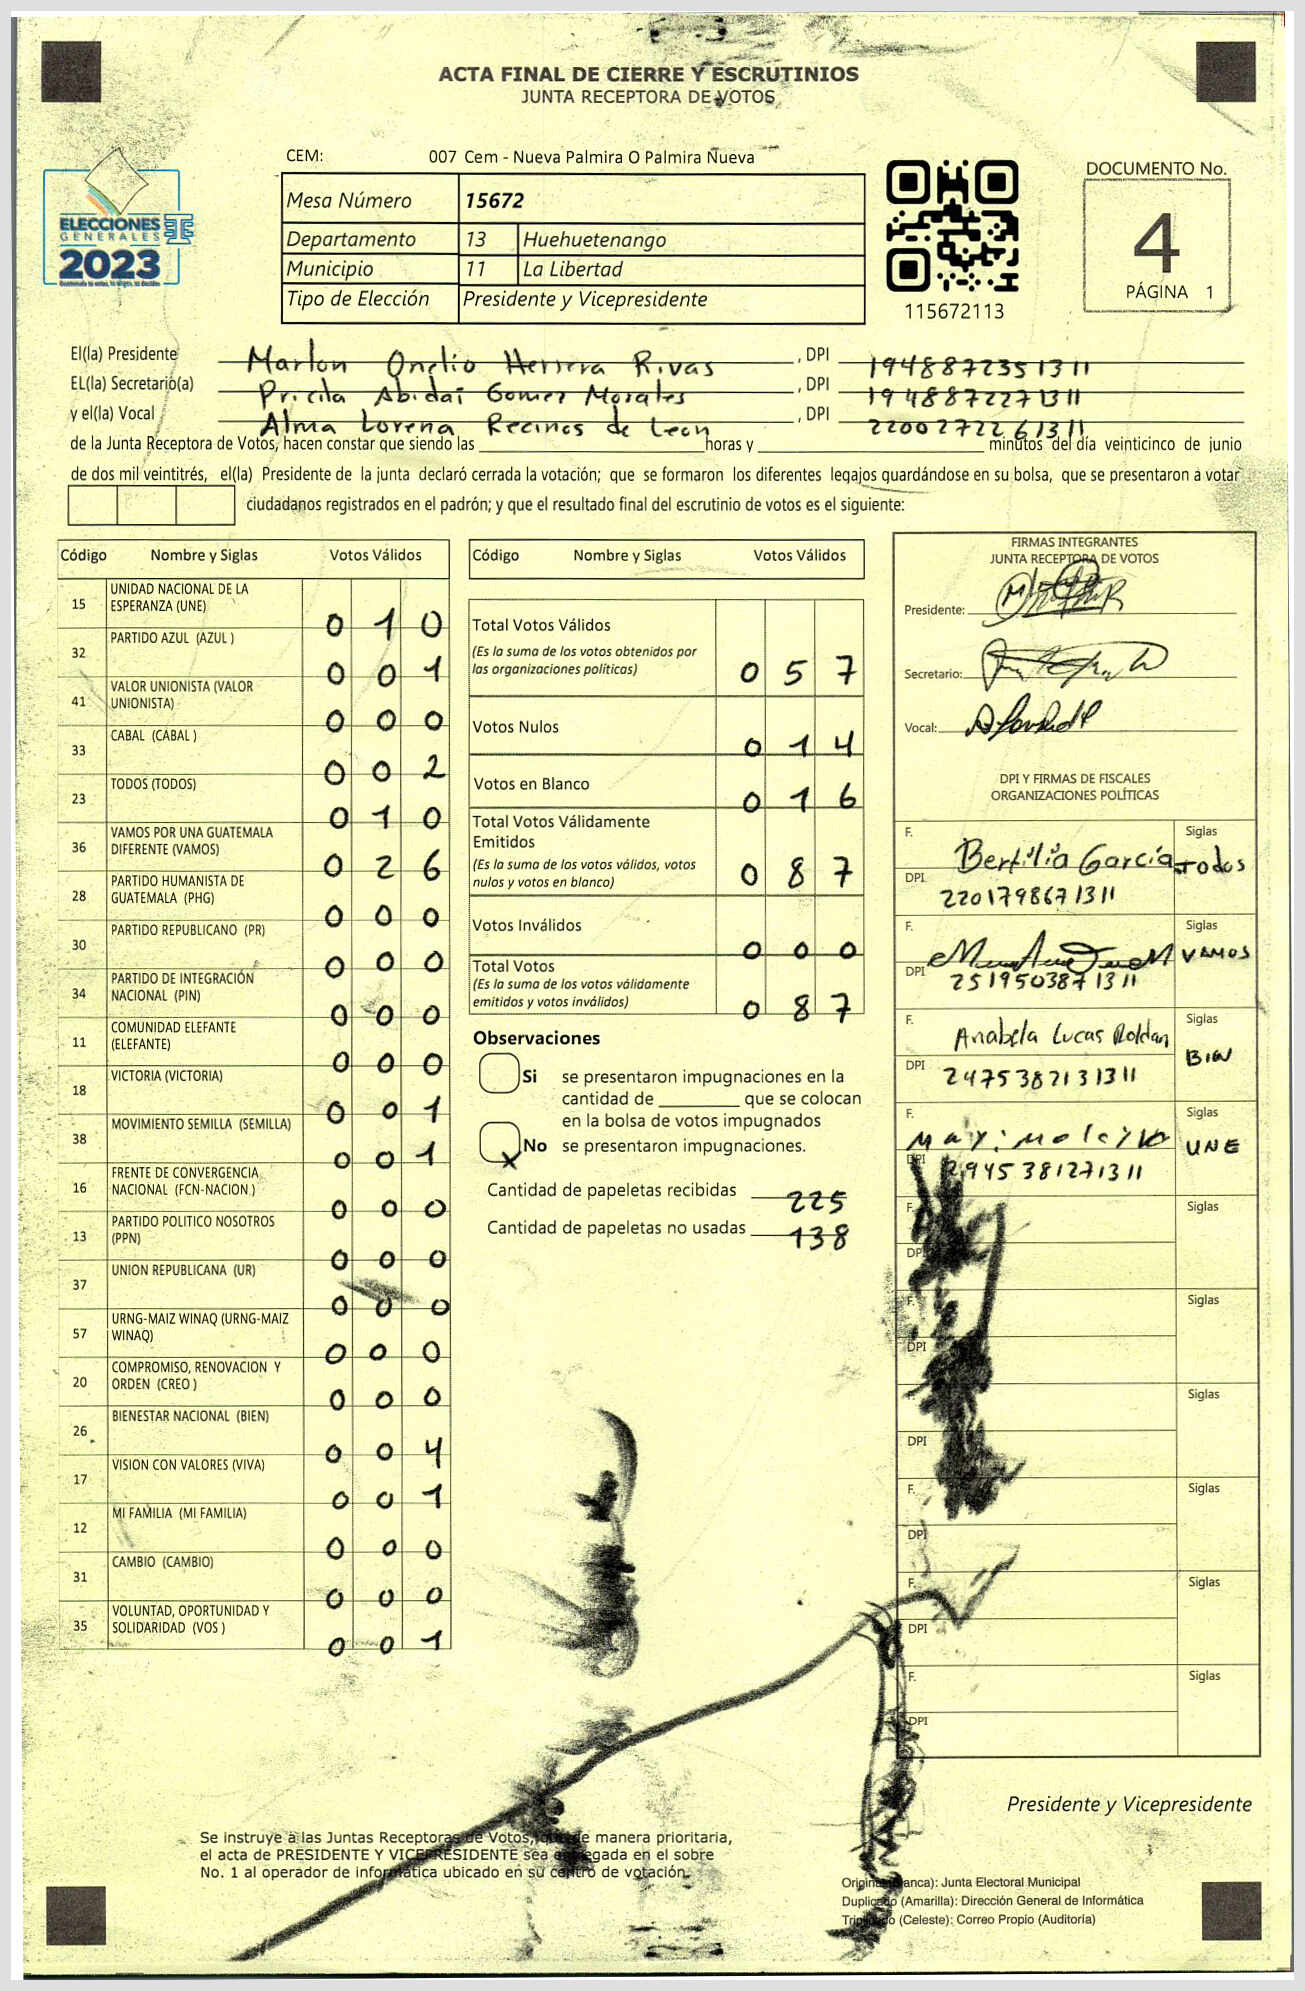 ACTA FINAL DE CIERRE Y ESCRUTINIOS
JUNTA RECEPTORA DE VOTOS
CEM: 007 Cem - Nueva Palmira O Palmira Nueva
ELECCIONES
GENERALES
2023
Mesa Número 15672
Departamento 13 Huehuetenango
Municipio 11 La Libertad
Tipo de Elección Presidente y Vicepresidente
115672113
DOCUMENTO No.
4
PÁGINA 1
El(la) Presidente Marlon Onelio Herrera Rivas, DPI 1948872351311
EL(la) Secretario(a) Pricila Abidaí Gomez Morales, DPI 1948872271311
y el(la) Vocal Alma Lorena Recinos de Leon, DPI 2200272261311
de la Junta Receptora de Votos, hacen constar que siendo las horas y minutos del día veinticinco de junio
de dos mil veintitrés, el(la) Presidente de la junta declaró cerrada la votación; que se formaron los diferentes legajos guardándose en su bolsa, que se presentaron a votar
ciudadanos registrados en el padrón; y que el resultado final del escrutinio de votos es el siguiente:
Código Nombre y Siglas Votos Válidos
15 UNIDAD NACIONAL DE LA ESPERANZA (UNE) 0 1 0
32 PARTIDO AZUL (AZUL ) 0 0 1
41 VALOR UNIONISTA (VALOR UNIONISTA) 0 0 0
33 CABAL (CABAL ) 0 0 2
23 TODOS (TODOS) 0 1 0
36 VAMOS POR UNA GUATEMALA DIFERENTE (VAMOS) 0 2 6
28 PARTIDO HUMANISTA DE GUATEMALA (PHG) 0 0 0
30 PARTIDO REPUBLICANO (PR) 0 0 0
34 PARTIDO DE INTEGRACIÓN NACIONAL (PIN) 0 0 0
11 COMUNIDAD ELEFANTE (ELEFANTE) 0 0 0
18 VICTORIA (VICTORIA) 0 0 1
38 MOVIMIENTO SEMILLA (SEMILLA) 0 0 1
16 FRENTE DE CONVERGENCIA NACIONAL (FCN-NACION ) 0 0 0
13 PARTIDO POLITICO NOSOTROS (PPN) 0 0 0
37 UNION REPUBLICANA (UR) 0 0 0
57 URNG-MAIZ WINAQ (URNG-MAIZ WINAQ) 0 0 0
20 COMPROMISO, RENOVACION Y ORDEN (CREO ) 0 0 0
26 BIENESTAR NACIONAL (BIEN) 0 0 4
17 VISION CON VALORES (VIVA) 0 0 1
12 MI FAMILIA (MI FAMILIA) 0 0 0
31 CAMBIO (CAMBIO) 0 0 0
35 VOLUNTAD, OPORTUNIDAD Y SOLIDARIDAD (VOS ) 0 0 1
Código Nombre y Siglas Votos Válidos
Total Votos Válidos
(Es la suma de los votos obtenidos por
las organizaciones políticas) 0 5 7
Votos Nulos 0 1 4
Votos en Blanco 0 1 6
Total Votos Válidamente
Emitidos
(Es la suma de los votos válidos, votos
nulos y votos en blanco) 0 8 7
Votos Inválidos 0 0 0
Total Votos
(Es la suma de los votos válidamente
emitidos y votos inválidos) 0 8 7
Observaciones
Si se presentaron impugnaciones en la
cantidad de que se colocan
en la bolsa de votos impugnados
X No se presentaron impugnaciones.
Cantidad de papeletas recibidas 225
Cantidad de papeletas no usadas 138
FIRMAS INTEGRANTES
JUNTA RECEPTORA DE VOTOS
Presidente:
Secretario:
Vocal:
DPI Y FIRMAS DE FISCALES
ORGANIZACIONES POLÍTICAS
F. Bertilia García Siglas Todos
DPI 2201798671311
F. Siglas VAMOS
DPI 2519503871311
F. Anabela Lucas Roldan Siglas BIEN
DPI 2475382131311
F. Siglas UNE
DPI 2945381271311
F. Siglas
DPI
F. Siglas
DPI
F. Siglas
DPI
F. Siglas
DPI
F. Siglas
DPI
F. Siglas
DPI
Presidente y Vicepresidente
Se instruye a las Juntas Receptoras de Votos, que de manera prioritaria,
el acta de PRESIDENTE Y VICEPRESIDENTE sea entregada en el sobre
No. 1 al operador de informática ubicado en su centro de votación.
Original (Blanca): Junta Electoral Municipal
Duplicado (Amarilla): Dirección General de Informática
Triplicado (Celeste): Correo Propio (Auditoría)